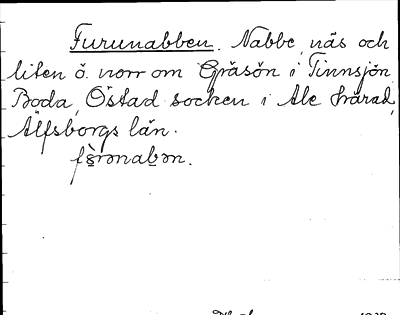 Furunabben. Nabbe, näs och
liten ö norr om Gräsön i Tinnsjön
Boda, Östad socken i Ale härad,
Älfsborgs län.